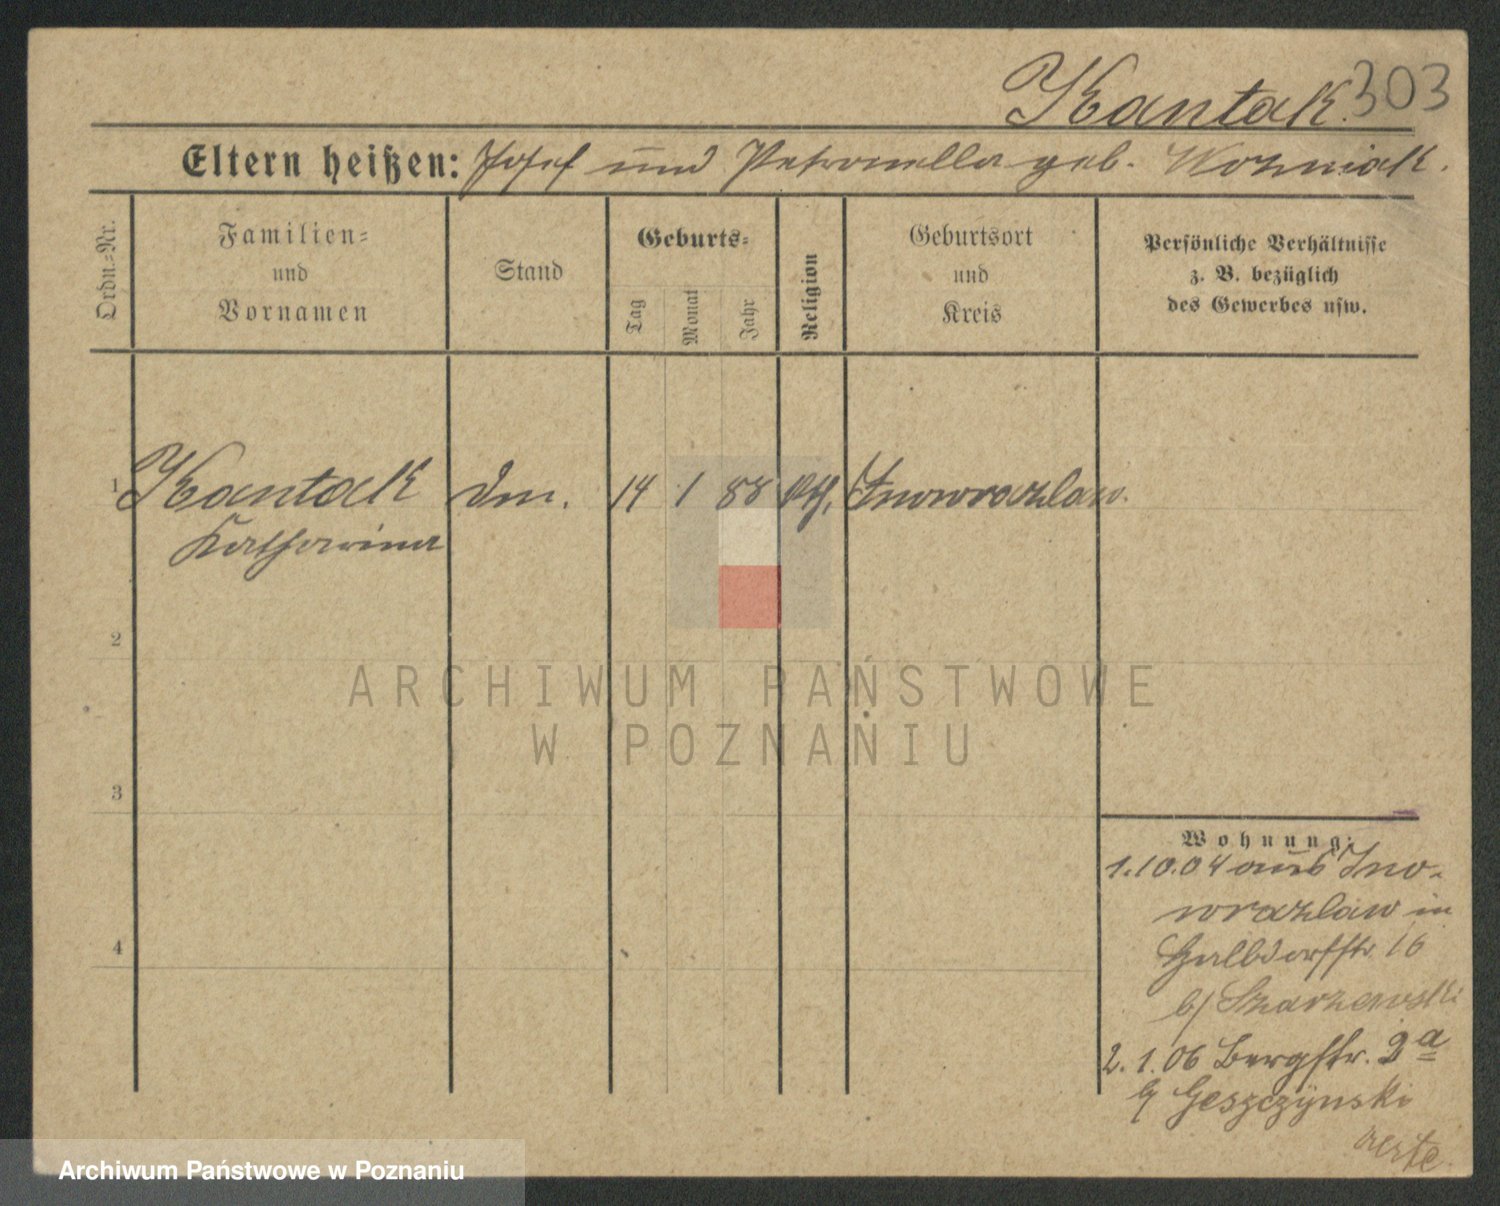 Kantak. 303
Eltern heißen: Josef und Petronella geb. Wozniak.
Ordn.-Nr.
Familien-
und
Vornamen
Stand
Geburts-
Tag
Monat
Jahr
Religion
Geburtsort
und
Kreis
Persönliche Verhältnisse
z. B. bezüglich
des Gewerbes usw.
1 Kantak 14 1 88 kth. Inowrazlaw.
Katharina
2
ARCHIWUM PAŃSTWOWE
W POZNANIU
3
Wohnung:
1.10.04 aus Ino-
wrazlaw in
4
Halbdorfstr. 16
b/ Szarzewski
2. 1. 06 Bergstr. 2a
b/ Geszczynski
Archiwum Państwowe w Poznaniu